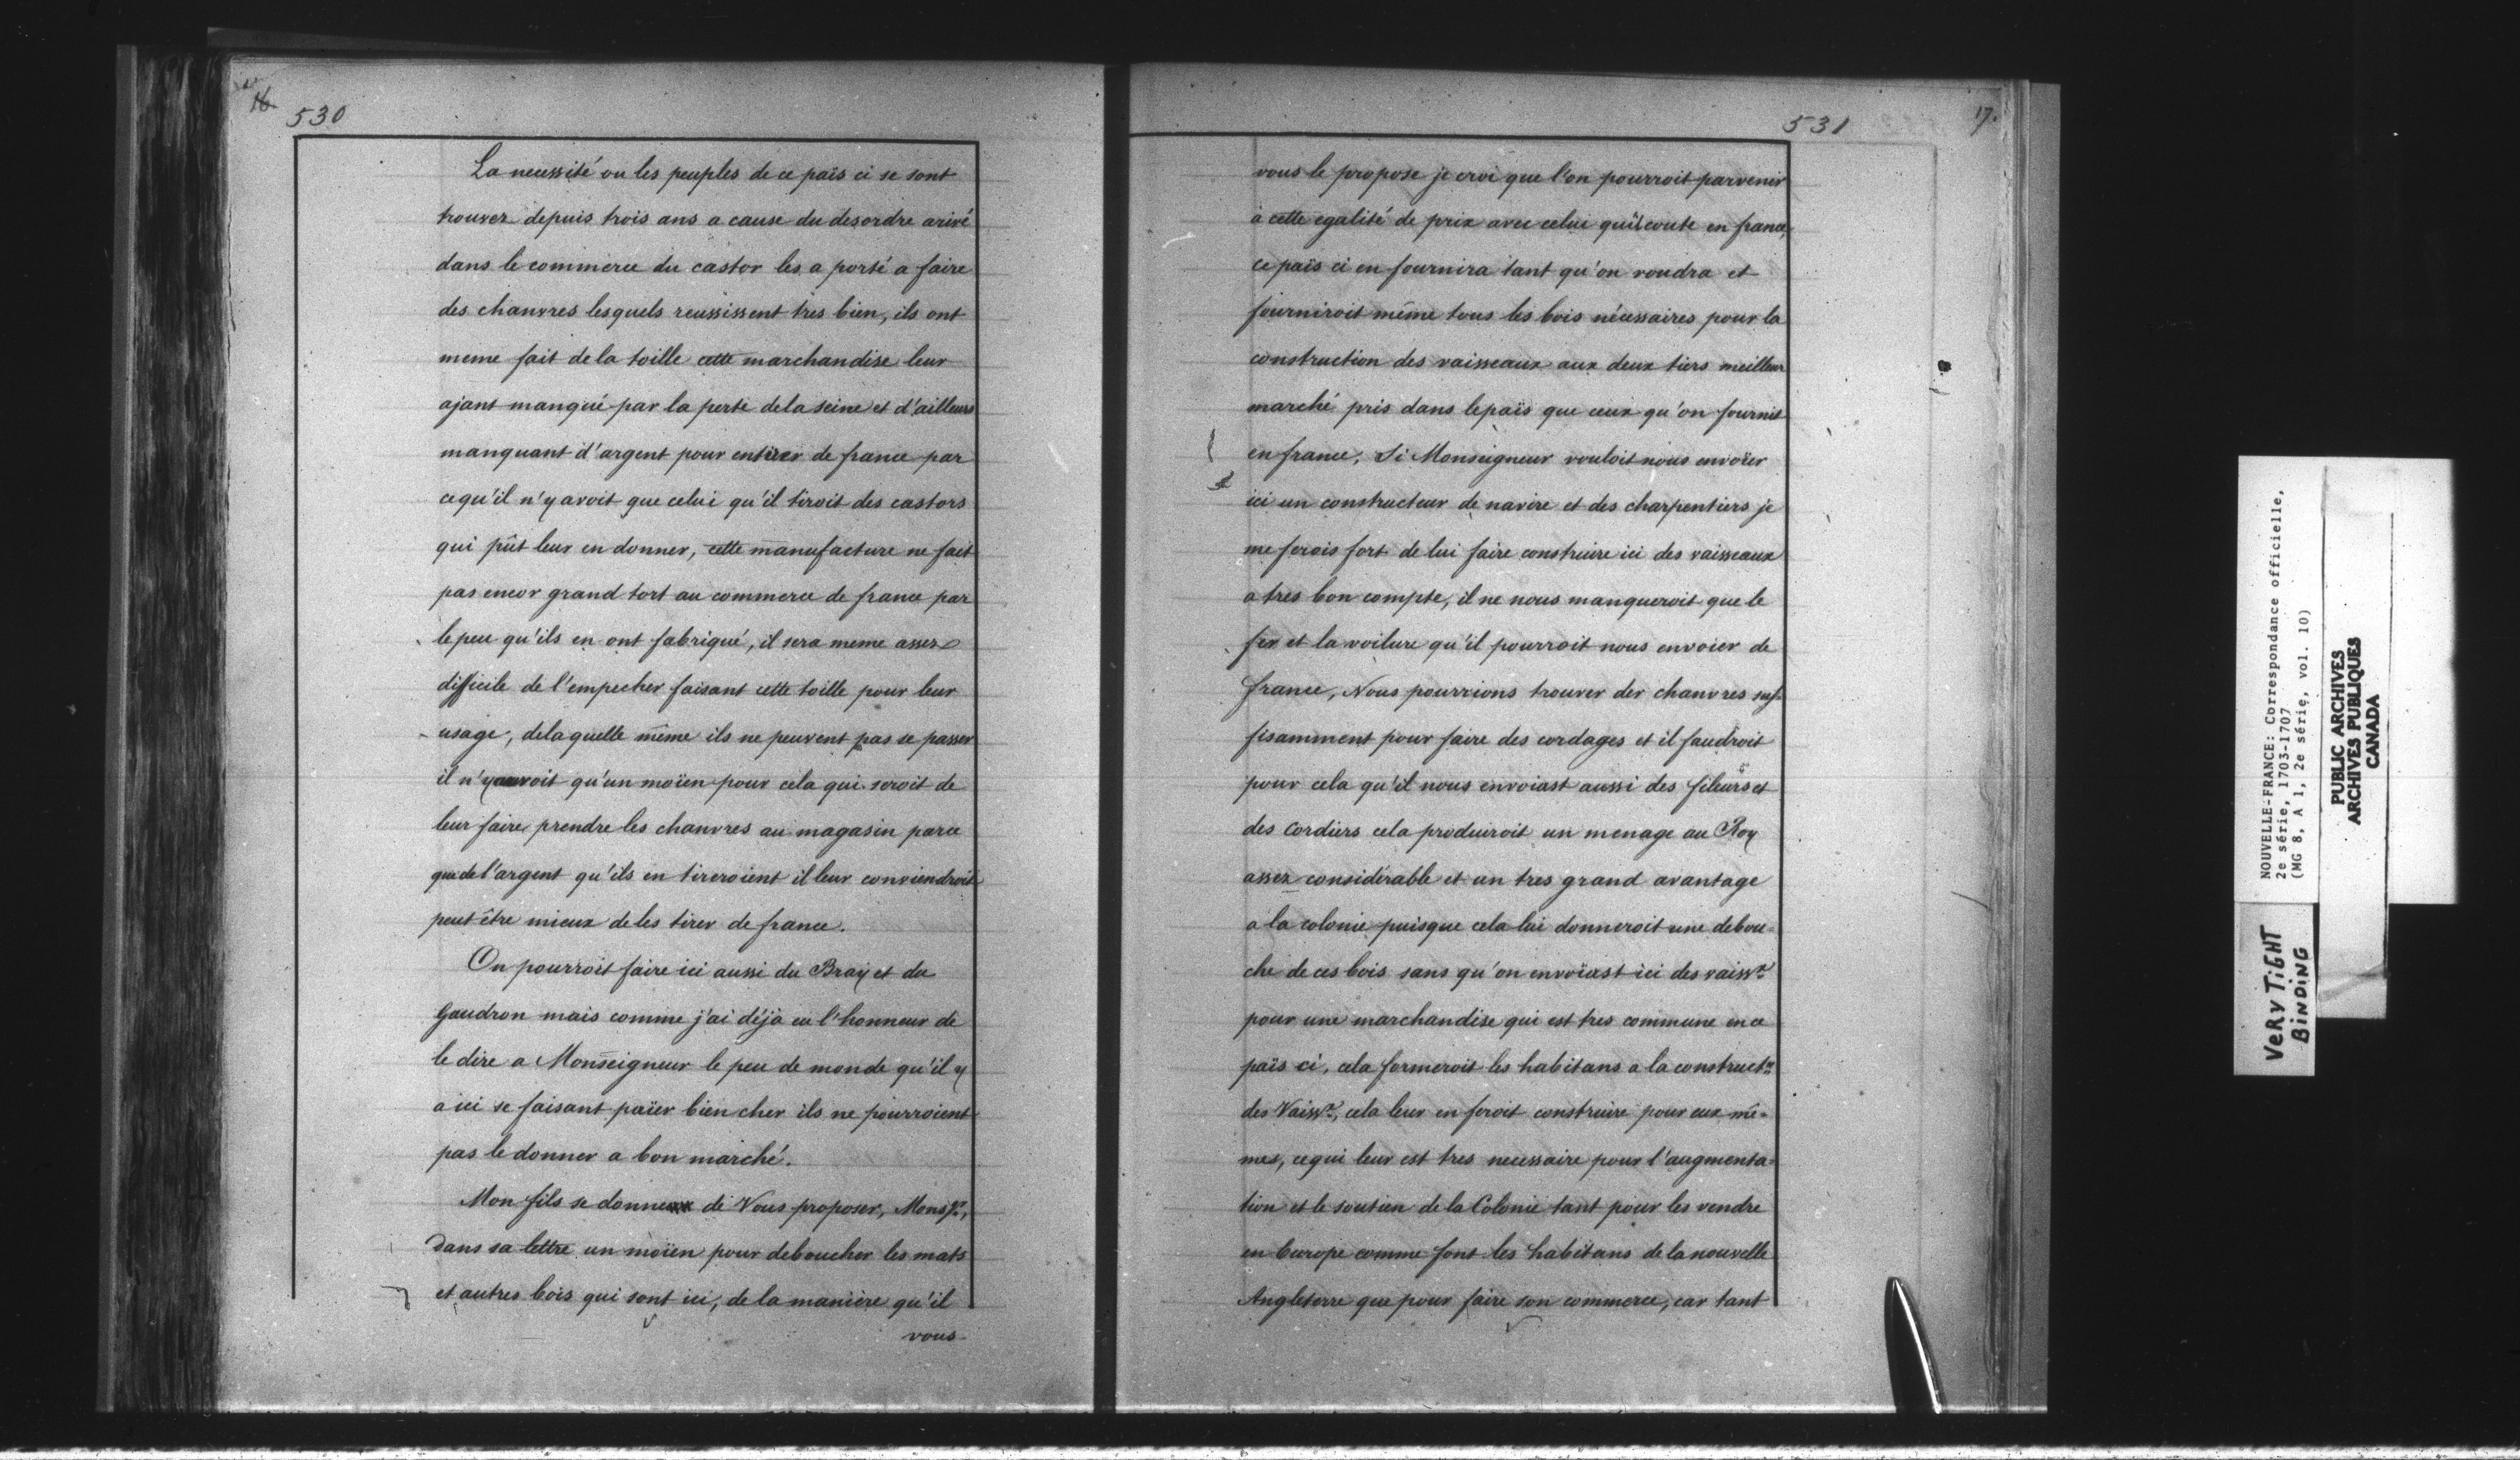 16
530
La necessité ou les peuples de ce païs ci se sont
trouvez depuis trois ans a cause du desordre arivé
dans le commerce du castor les a porté a faire
des chanvres lesquels reussissent tres bien, ils ont
meme fait de la toille cette marchandise leur
ajant manqué par la perte de la seine et d'ailleurs
manquant d'argent pour en tirer de france par
ce qu'il n'y avoit que celui qu'il tiroit des castors
qui pût leur en donner, cette manufacture ne fait
pas encor grand tort au commerce de france par
le peu qu'ils en ont fabriqué, il sera meme assez
difficile de l'empecher faisant cette toille pour leur
usage, de laquelle même ils ne peuvent pas se passer
il n'y auroit qu'un moïen pour cela qui seroit de
leur faire prendre les chanvres au magasin parce
que de l'argent qu'ils en tireroient il leur conviendroit
peut être mieux de les tirer de france.
On pourroit faire ici aussi du Bray et du
Gaudron mais comme j'ai déjà eu l'honneur de
le dire a Monseigneur le peu de monde qu'il y
a ici se faisant païer bien cher ils ne pourroient
pas le donner a bon marché.
Mon fils se donne de Vous proposer, Monsgr,
Dans sa lettre un moïen pour deboucher les mats
et autres bois qui sont ici, de la manière qu'il
vous
531
17.
vous le propose je croi que l'on pourroit parvenir
à cette egalité de prix avec celui qu'il coute en france,
ce païs ci en fournira tant qu'on voudra et
fourniroit même tous les bois nécessaires pour la
construction des vaisseaux aux deux tiers meilleur
marché pris dans le païs que ceux qu'on fournit
en france, Si Monseigneur vouloit nous envoïer
ici un constructeur de navire et des charpentiers je
me ferois fort de lui faire construire ici des vaisseaux
a tres bon compte, il ne nous manqueroit que le
fer et la voilure qu'il pourroit nous envoier de
france, Nous pourrions trouver der chanvres suf-
fisamment pour faire des cordages et il faudroit
pour cela qu'il nous envoiast aussi des fileurs et
des Cordiers cela produiroit un menage au Roy
assez considérable et un tres grand avantage
a la colonie puisque cela lui donneroit une debou-
che de ces bois sans qu'on envoïast ici des vaissx
pour une marchandise qui est tres commune en ce
païs ci, cela formeroit les habitans a la construct.on
des Vaissx, cela leur en feroit construire pour eux mê-
mes, ce qui leur est tres necessaire pour l'augmenta-
tion et le soutien de la Colonie tant pour les vendre
en Europe comme font les habitans de la nouvelle
Angleterre que pour faire son commerce, car tant
NOUVELLE-FRANCE: Correspondance officielle,
2e série, 1703-1707
(MG 8, A 1, 2e série, vol. 10)
PUBLIC ARCHIVES
ARCHIVES PUBLIQUES
CANADA
VERY TIGHT
BINDING